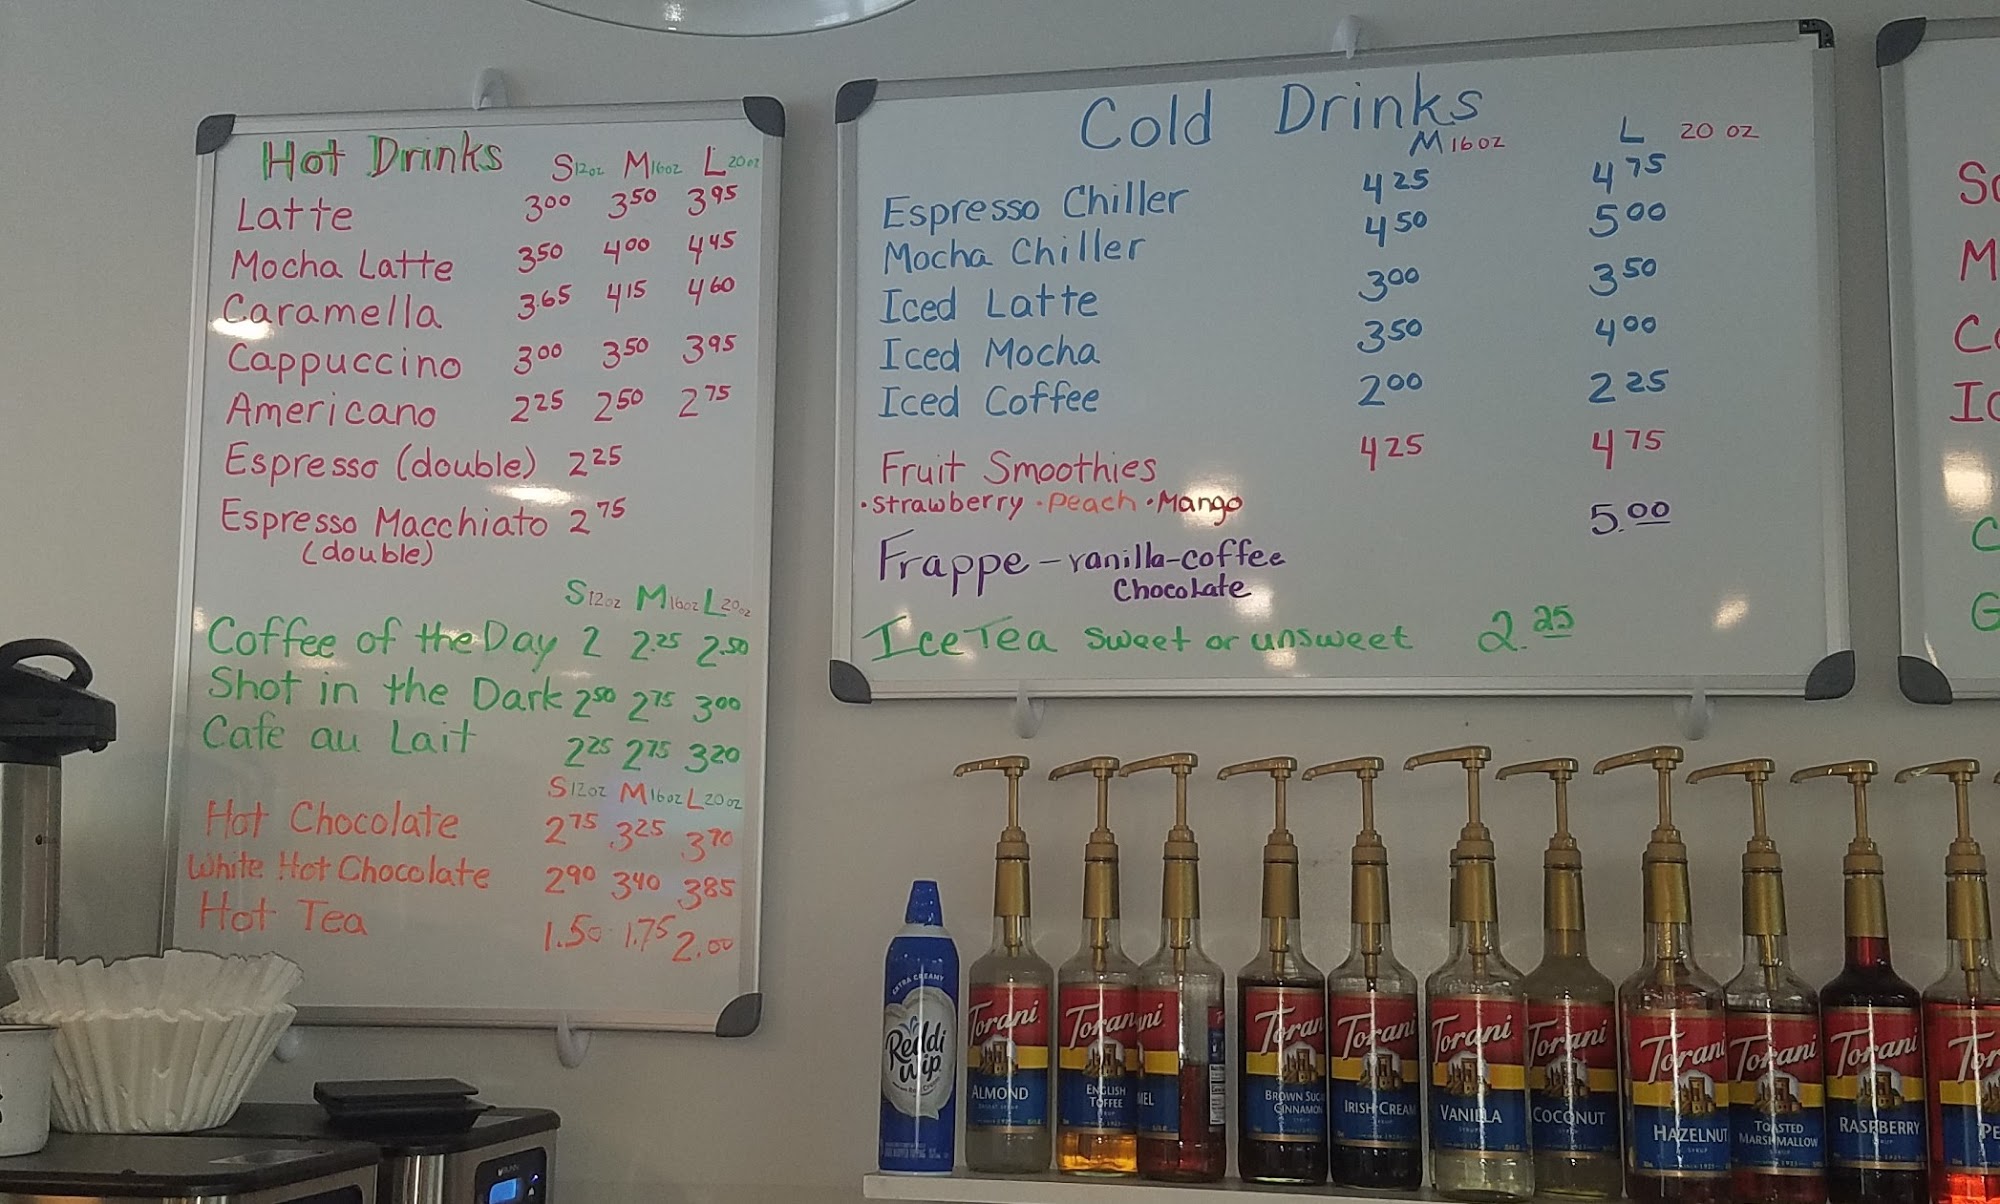 Hot Drinks S12oz M16oz L20oz
Latte 3.00 3.50 3.95
Mocha Latte 3.50 4.00 4.45
Caramella 3.65 4.15 4.60
Cappuccino 3.00 3.50 3.95
Americano 2.25 2.50 2.75
Espresso (double) 2.25
Espresso Macchiato 2.75
(double)
S12oz M16oz L20oz
Coffee of the Day 2 2.25 2.50
Shot in the Dark 2.50 2.75 3.00
Cafe au Lait 2.25 2.75 3.20
S12oz M16oz L20oz
Hot Chocolate 2.75 3.25 3.70
White Hot Chocolate 2.90 3.40 3.85
Hot Tea 1.50 1.75 2.00
Cold Drinks
M16oz L 20 oz
Espresso Chiller 4.25 4.75
Mocha Chiller 4.50 5.00
Iced Latte 3.00 3.50
Iced Mocha 3.50 4.00
Iced Coffee 2.00 2.25
Fruit Smoothies 4.25 4.75
·Strawberry ·Peach ·Mango
Frappe - vanilla-coffee 5.00
Chocolate
Ice Tea sweet or unsweet 2.25
EXTRA CREAMY
Reddi
Wip
Torani
ALMOND
Torani
ENGLISH
TOFFEE
Torani
BROWN SUGAR
CINNAMON
Torani
IRISH CREAM
Torani
VANILLA
Torani
COCONUT
Torani
HAZELNUT
Torani
TOASTED
MARSHMALLOW
Torani
RASPBERRY